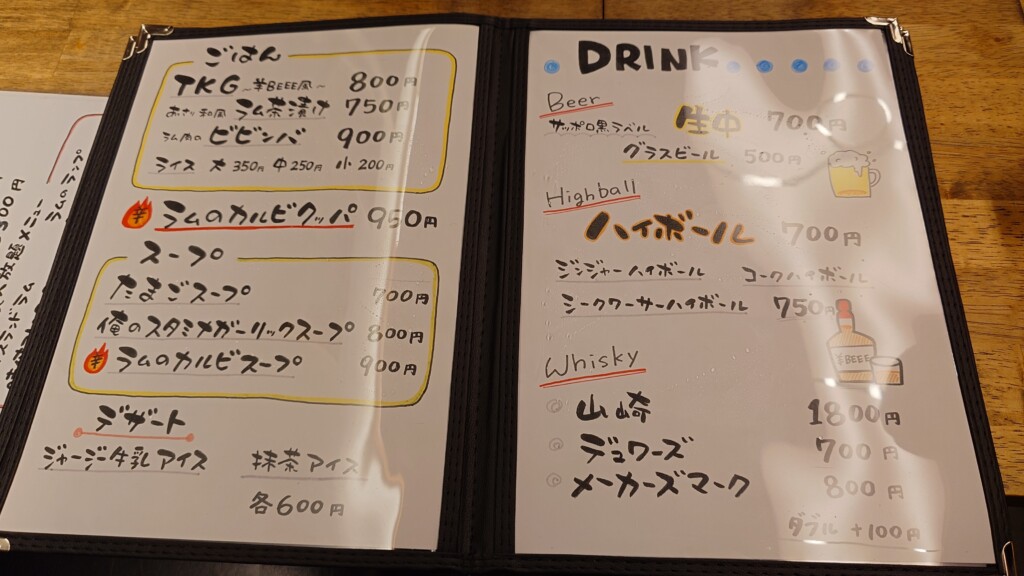 ごはん
TKG ~羊BEEE風~ 800円
あさり和風 ラム茶漬け 750円
ラム肉の ビビンバ 900円
ライス 大 350円 中 250円 小 200円
羊 ラムのカルビクッパ 950円
スープ
たまごスープ 700円
俺のスタミナガーリックスープ 800円
羊 ラムのカルビスープ 900円
デザート
ジャージー牛乳アイス 抹茶アイス
各600円
DRINK
Beer
サッポロ黒ラベル 生中 700円
グラスビール 500円
Highball
ハイボール 700円
ジンジャーハイボール コークハイボール
シークワーサーハイボール 750円
羊BEEE
Whisky
山崎 1800円
デュワーズ 700円
メーカーズマーク 800円
ダブル +100円